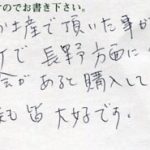 すのでお書き下さい。
お土産で頂いた事が
イで長野方面に
会があると購入して
も皆大好です。